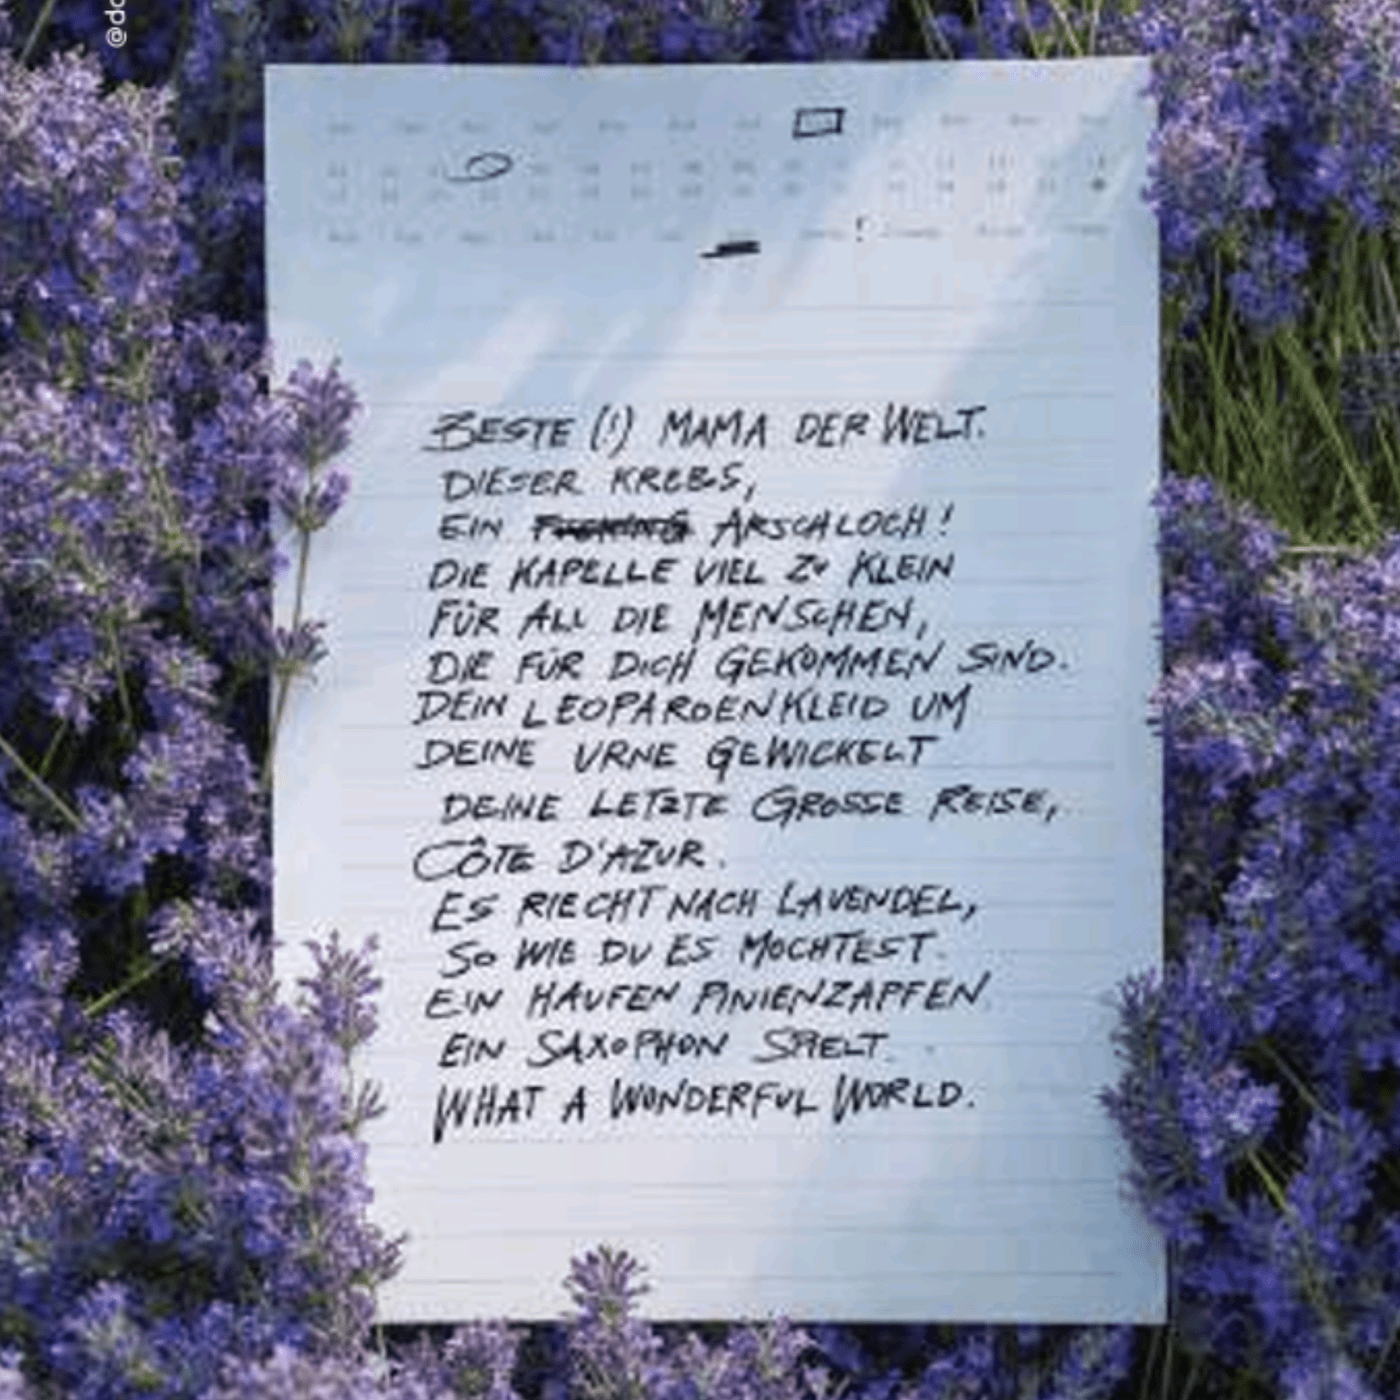 @do
BESTE (!) MAMA DER WELT.
DIESER KREBS,
EIN FUCKING ARSCHLOCH!
DIE KAPELLE VIEL ZU KLEIN
FÜR ALL DIE MENSCHEN,
DIE FÜR DICH GEKOMMEN SIND.
DEIN LEOPARDENKLEID UM
DEINE URNE GEWICKELT
DEINE LETZTE GROSSE REISE,
CÔTE D'AZUR.
ES RIECHT NACH LAVENDEL,
SO WIE DU ES MOCHTEST.
EIN HAUFEN PINIENZAPFEN
EIN SAXOPHON SPIELT.
WHAT A WONDERFUL WORLD.